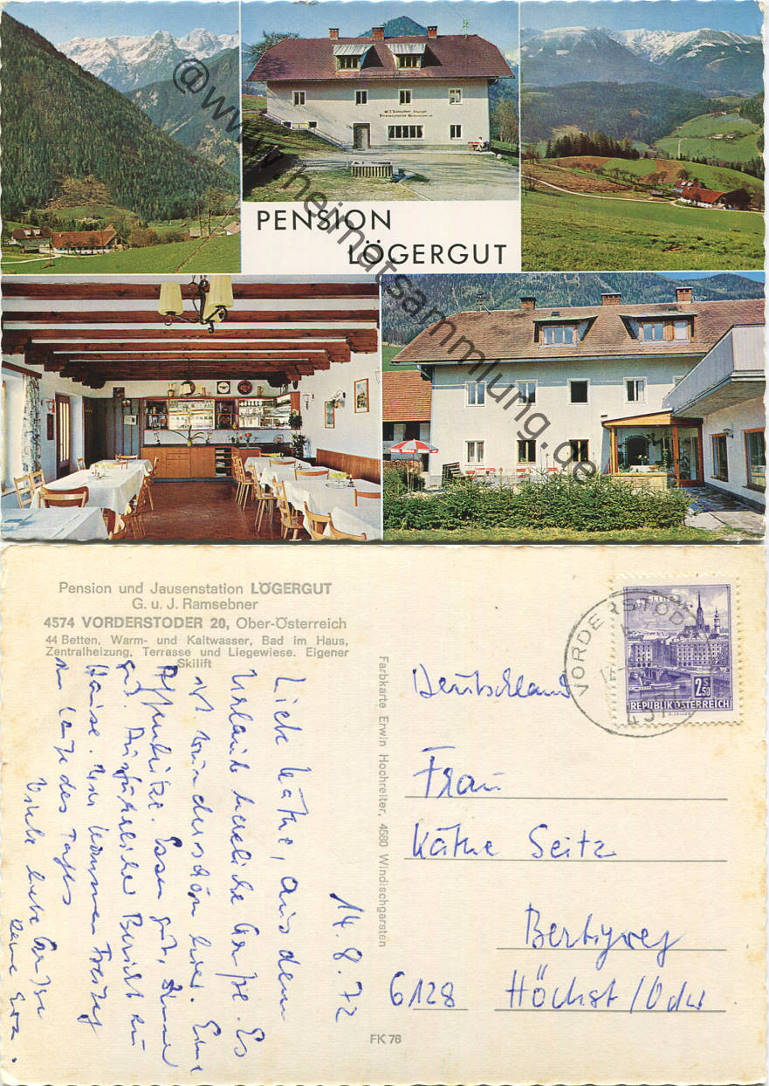 PENSION
LÖGERGUT
@www.heimatsammlung.de
Pension und Jausenstation LÖGERGUT
G. u. J. Ramsebner
4574 VORDERSTODER 20, Ober-Österreich
44 Betten, Warm- und Kaltwasser, Bad im Haus,
Zentralheizung, Terrasse und Liegewiese. Eigener
Skilift
14.8.72
Liebe Käthe, aus dem
Urlaub herzliche Grüße. Es
ist wunderschön hier. Eine
Affenhitze. Essen gut, Zimmer
gut. Ausführlicher Bericht zu
Hause. Wir kommen Freitag
im Laufe des Tages
Viele liebe Grüße
Deine
Farbkarte Erwin Hochreiter, 4580 Windischgarsten
FK 76
VORDERSTODER
2.50
REPUBLIK ÖSTERREICH
Deutschland
Frau
Käthe Seitz
6128 Höchst/Odw